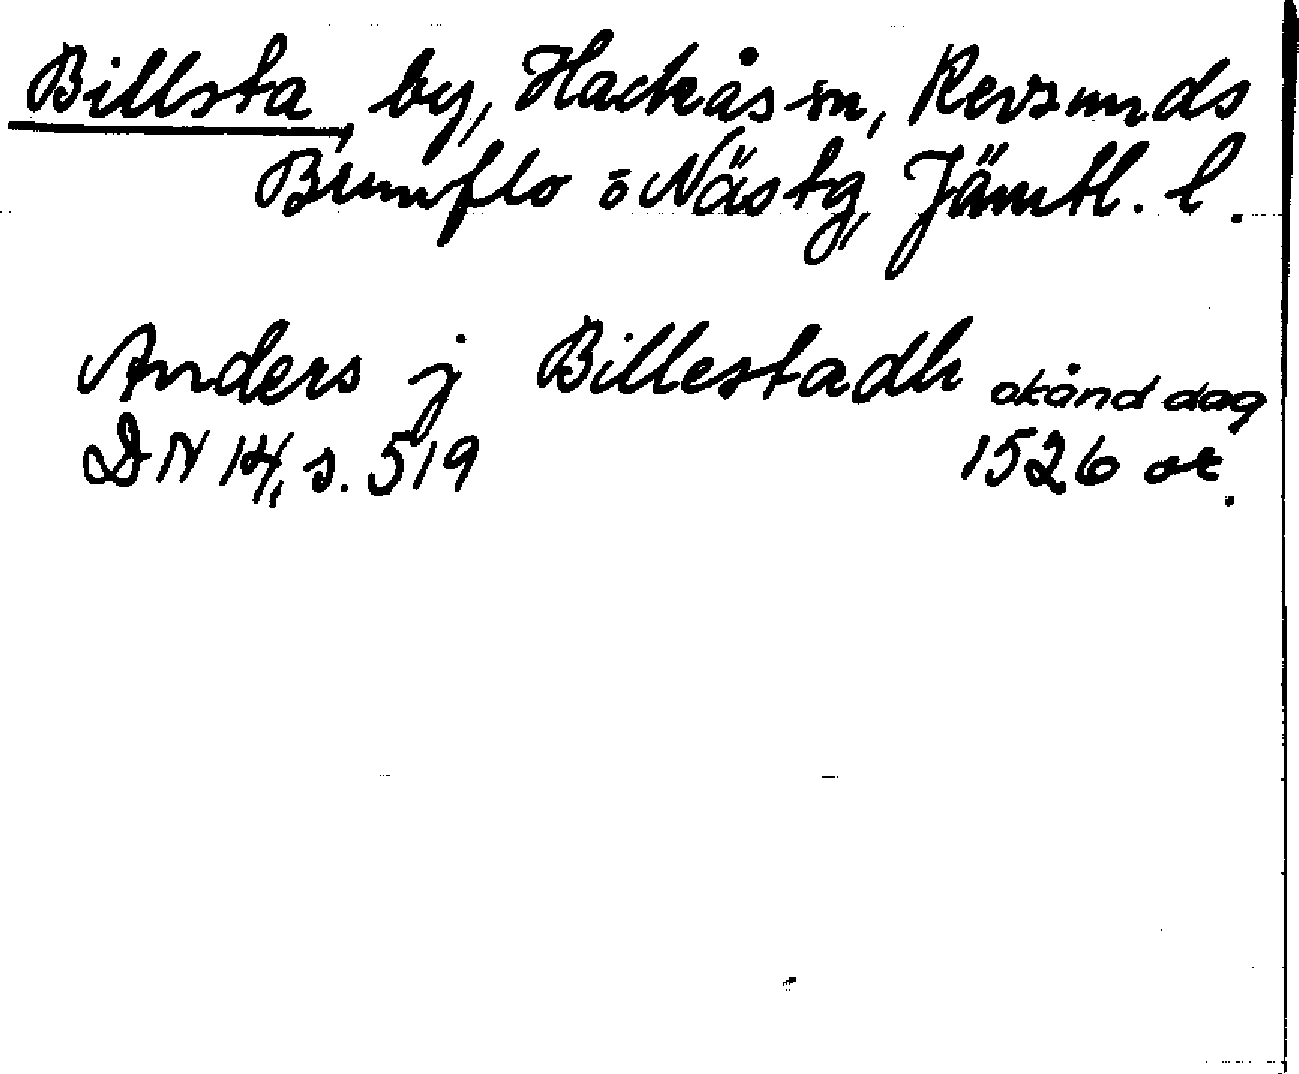 Billsta, by, Hackås sn, Revsunds
Brunflo o Näs tg, Jämtl. l.
Anders j Billestadh okänd dag
DN 14, s. 519 1526 or.